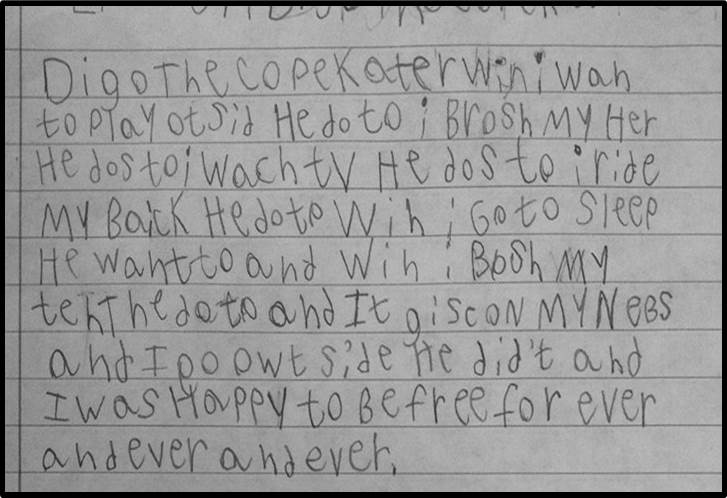 Digo The copeKater Win i wan
to play otsid He do to i Brosh My Her
He dos to i wach tv He dos to i ride
My Baick He do to Win i Go to Sleep
He want to and Win i Bosh My
teht he do to and It gisc on My Nebs
and I po owt side He did't and
I was Happy to Be free for ever
and ever and ever.